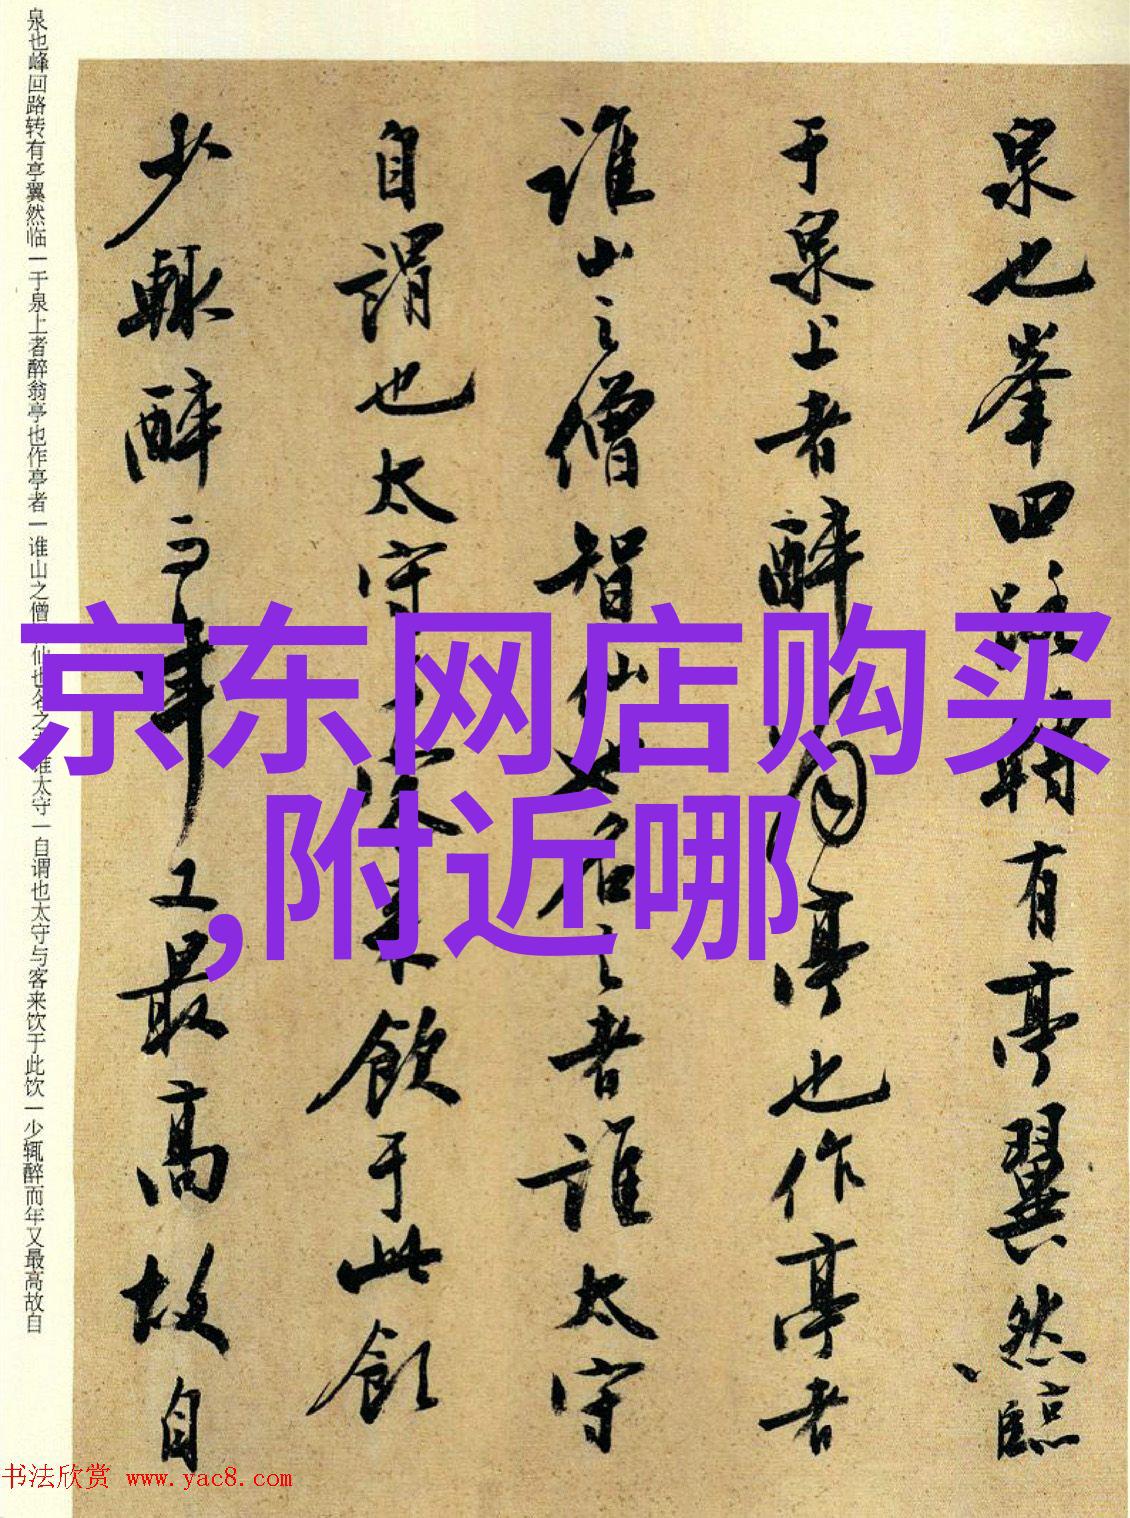 泉也峯回路轉有亭翼然臨
于泉上者醉翁亭也作亭者
誰山之僧智仙也名之者誰太守
自謂也太守与客来飲于此飲
少輒醉而年又最高故自
泉也峰回路转有亭翼然临一于泉上者醉翁亭也作亭者一谁山之僧仙也名之者谁太守一自谓也太守与客来饮于此饮一少辄醉而年又最高故自
京东网店购买
,附近哪
书法欣赏 www.yac8.com